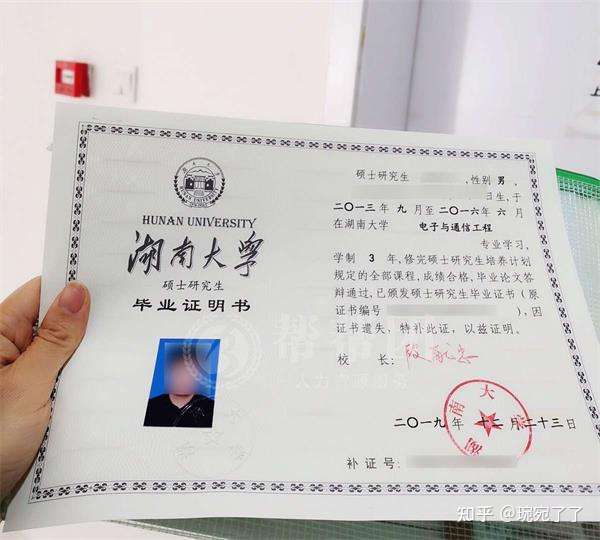 HUNAN UNIVERSITY
湖南大学
硕士研究生
毕业证明书
硕士研究生 ,性别 男 。
日生,于
二〇一三年 九 月至二〇一六年 六 月
在湖南大学 电子与通信工程
专业学习,
学制 3 年,修完硕士研究生培养计划
规定的全部课程,成绩合格,毕业论文答
辩通过,已颁发硕士研究生毕业证书(原
证书编号 ),因
证书遗失,特补此证,以兹证明。
校 长:
二〇一九年 十二月二十三日
补 证 号:
帮帮团
知乎 @坃宛了了